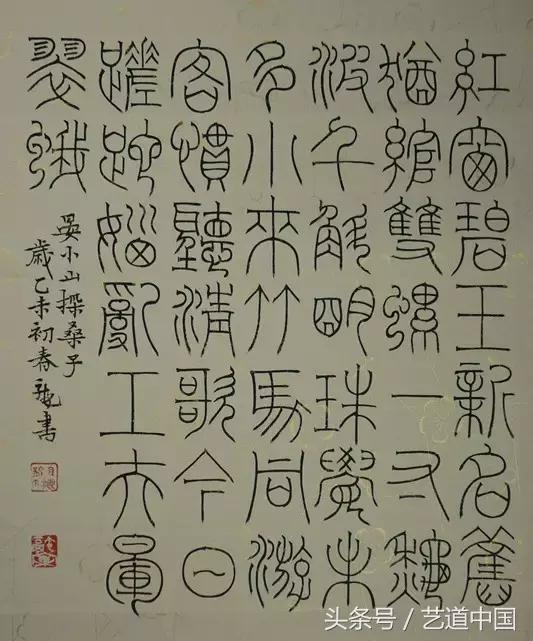 紅窗碧玉新名舊
猶綰雙螺一寸秋
波千斛明珠覺未
多小來竹馬同游
客慣聽清歌今日
蹉跎惱亂工夫暈
翠蛾
晏小山採桑子
歲乙未初春書
头条号 / 艺道中国